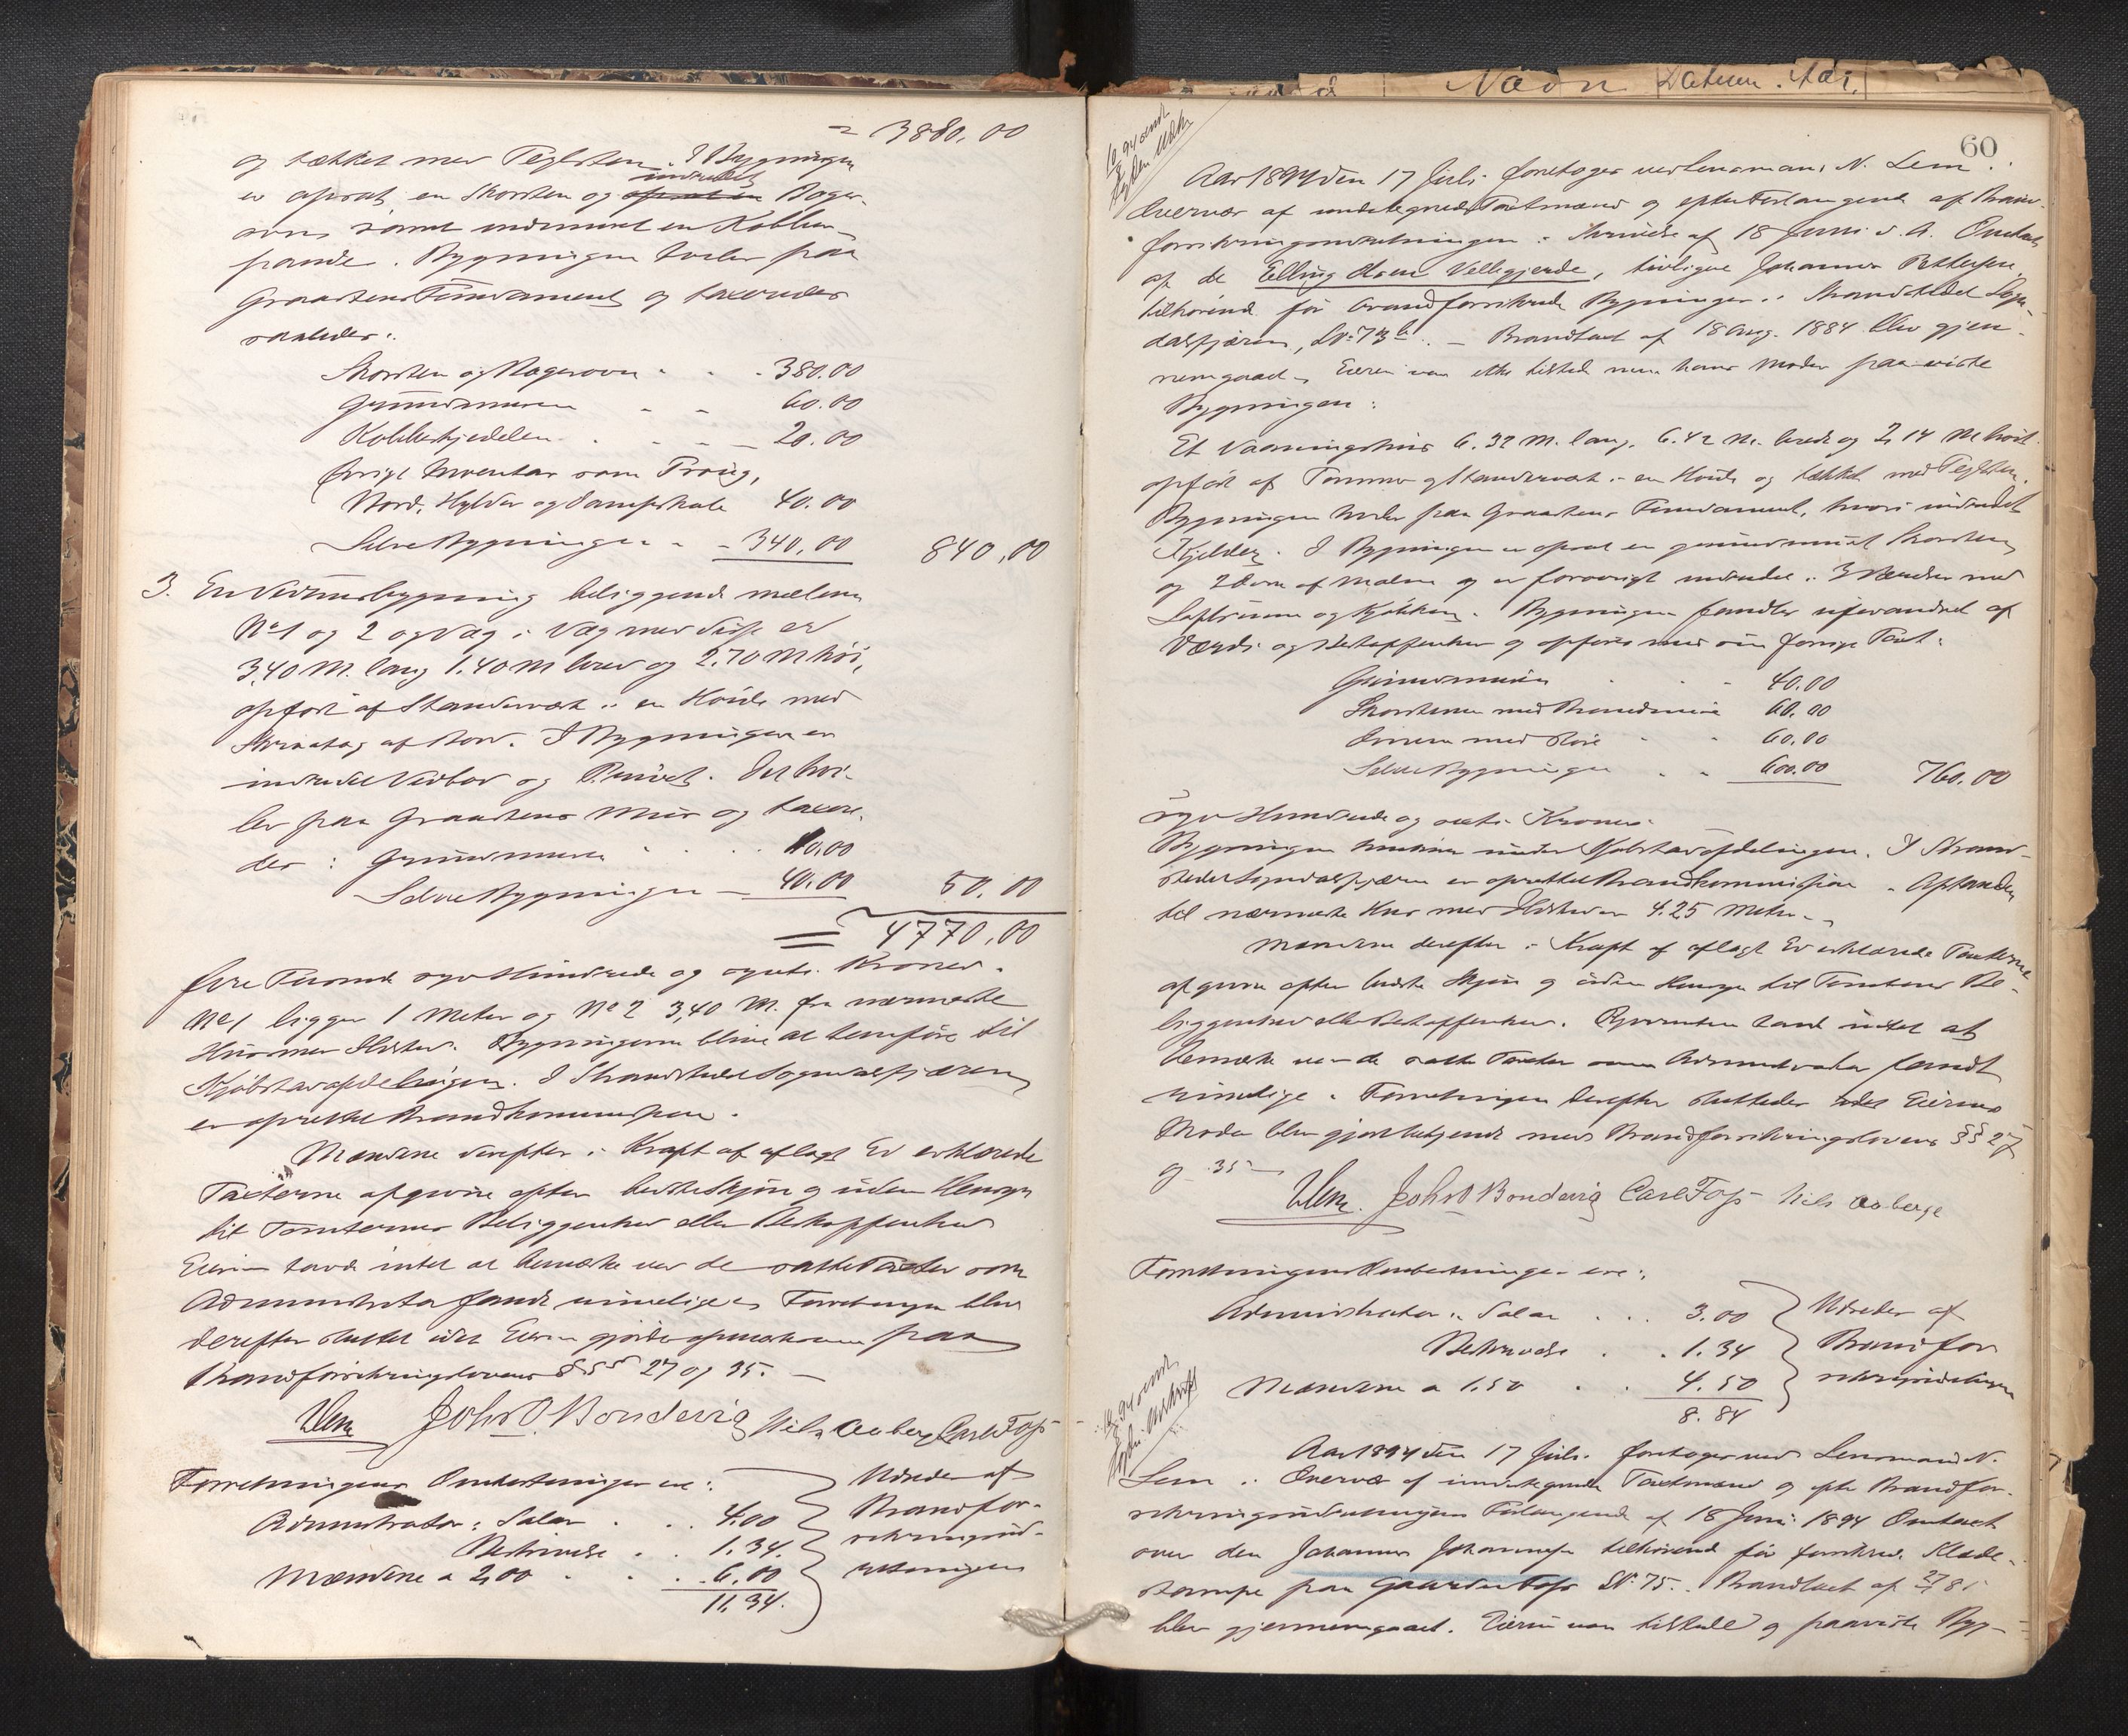 = 3880.00
og tækket med Teglsten. I Bygningen
er opsat en Skorsten og indredet Bager-
ovn samt indmuret en Kobber-
pande. Bygningen hviler paa
Graastens Fundament og taxeredes
saaledes:
Skorsten og Bagerovn - - - 380.00
Grundmuren - - 60.00
Kobberkjedelen - - - 20.00
Øvrigt Inventar som Traug,
Bord, Hylder og Dampskab 40.00
Selve Bygningen - - 340.00 840.00
3. En Vedskursbygning beliggende mellem
No 1 og 2 og Væg i Væg med disse er
3,40 M. lang 1.40 M bred og 2.70 M høi,
opført af Standervæk i en Høide med
Skraatag af Bord. I Bygningen er
indredet Vedbod og Privet. Det hvi-
ler paa Graastens Mur og taxere-
des: Grundmuren - - - 10.00
Selve Bygningen - 40.00 50.00
= 4770.00
fire Tusinde syv Hundrede og sytti Kroner.
No 1 ligger 1 Meter og No 2 3,40 M. fra nærmeste
Hus med Ildsted. Bygningerne blive at henføre til
Kjøbstadafdelingen. I Strandstedet Sogndalsfjæren
er oprettet Brandkommission.
Mændene derefter i Kraft af aflagt Ed erklærede
Taxterne afgivne efter bedste Skjøn og uden Hensyn
til Tomternes Beliggenhed eller Beskaffenhed
Eieren havde intet at bemærke ved de satte Taxter som
Administrator fandt rimelige. Forretningen blev
derefter sluttet idet Eieren gjordes opmærksom paa
Brandforsikringslovens §§ 27 og 35. —
NLem John O. Bondevig Nils Aaberg Carl Foss
Forretningens Omkostninger ere:
Administrator i Salær . . 4.00
Beskrivelse . . 1.34.
Mændene a 2,00 . . . 6.00
11.34.
Udredes af
Brandfor-
sikringsind-
retningen
60
Aar 1894 den 17 Juli foretoges ved Lensmand N. Lem i
Overvær af undertegnede Taxtmænd og efter Forlangende af Brand-
forsikringsindretningen i Skrivelse af 18 Juni d. A. Omtaxt
af de Elling Olsen Vellegjerde, tidligere Johannes Pettersen
tilhørende før brandforsikrede Bygninger i Strandstedet Sogn-
dalsfjæren, LNo 73 b. — Brandtaxt af 18 Aug. 1884 blev gjen-
nemgaaet. Eieren var ikke tilstede men hans Moder paaviste
Bygningen:
Et Vaaningshus 6.32 M. lang, 6.42 M. bred og 2,14 M høit
opført af Tømmer og Standervæk i en Høide og tækket med Teglsten.
Bygningen hviler paa Graastens Fundament, hvori indredet
Kjelder. I Bygningen er opsat en grundmuret Skorsten
og 2 Ovne af Malm og er forøvrigt indredet i 3 Værelser med
Loftsrum og Kjøkken. Bygningen fandtes uforandret af
Værdi og Beskaffenhed og opføres med sin forrige Taxt:
Grundmuren - - 40.00
Skorstenen med Brandmure 60.00
Ovnene med Rør - - 60.00
Selve Bygningen . . 600.00 760.00
syv Hundrede og sexti Kroner.
Bygningen henhører under Kjøbstadafdelingen. I Strand-
stedet Sogndalsfjæren er oprettet Brandkommission. Afstanden
til nærmeste Hus med Ildsted er 4.25 Meter.
Mændene derefter i Kraft af aflagt Ed erklærede Taxterne
afgivne efter bedste Skjøn og uden Hensyn til Tomternes Be-
liggenhed eller Beskaffenhed. havde intet at
bemærke ved de satte Taxter som Administrator fandt
rimelige. Forretningen derefter sluttedes idet Eierens
Moder blev gjort bekjendt med Brandforsikringslovens §§ 27
og 35 —
NLem. John O Bondevig Carl Foss Nils Aaberge
Forretningens Omkostninger ere:
Administrator i Salær . . . 3.00
Beskrivelse . . 1.34
Mændene a 1.50 . . 4.50
8.84
Udredes af
Brandfor
sikringsindretningen
Aar 1894 den 17 Juli foretoges ved Lensmand N.
Lem i Overvær af undertegnede Taxtmænd og efter Brandfor-
sikringsindretningens Forlangende af 18 Juni 1894 Omtaxt
over den Johannes Johannesen tilhørende før forsikrede Klæde-
stampe paa Gaarden Foss LNo 75. Brandtaxt af
blev gjennemgaaet. Eieren var tilstede og paaviste Byg-